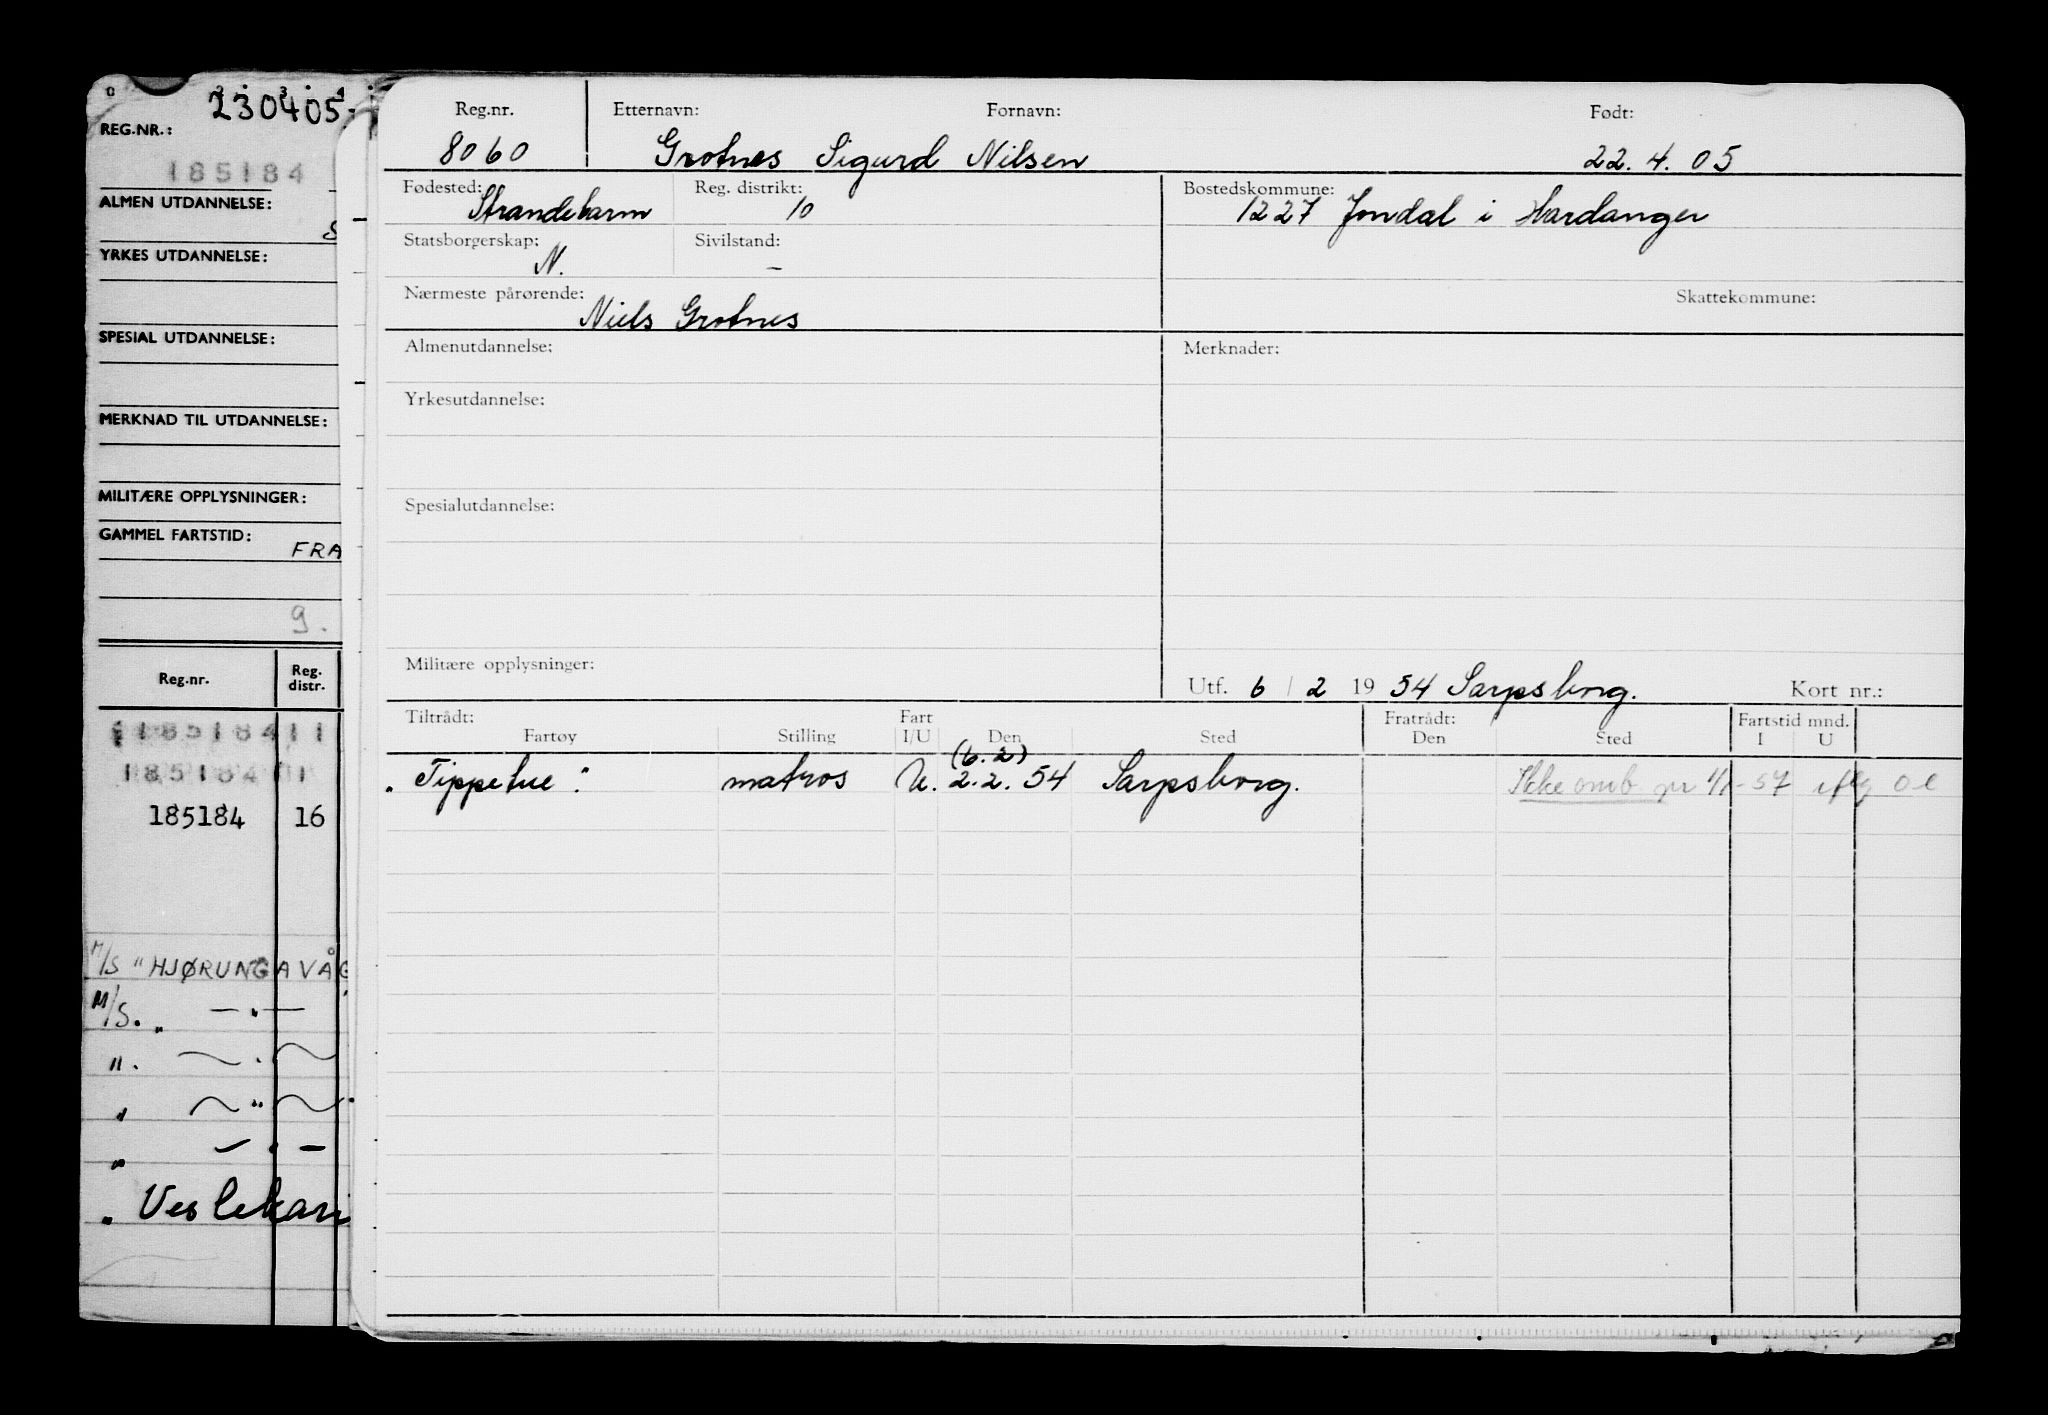 230405
REG.NR.:
185184
ALMEN UTDANNELSE:
S
YRKES UTDANNELSE:
SPESIAL UTDANNELSE:
MERKNAD TIL UTDANNELSE:
MILITÆRE OPPLYSNINGER:
GAMMEL FARTSTID:
FRA
9.
Reg.nr. Reg. distr.
185184 11
185184 01
185184 16
M/S "HJØRUNGAVÅG
M/S. „ — " —
". — " —
„ — " —
„ — " —
„ Veslekari
Reg.nr. Etternavn: Fornavn: Født:
8060 Grotnes Sigurd Nilsen 22.4.05
Fødested: Reg. distrikt: Bostedskommune:
Strandebarm 10 1227 Jondal i Hardanger
Statsborgerskap: Sivilstand:
N. –
Nærmeste pårørende: Skattekommune:
Niels Grotnes
Almenutdannelse: Merknader:
Yrkesutdannelse:
Spesialutdannelse:
Militære opplysninger:
Utf. 6 / 2 19 54 Sarpsborg. Kort nr.:
Tiltrådt: Fart Fratrådt: Fartstid mnd.
Fartøy Stilling I/U Den Sted Den Sted I U
(6.2)
„Tippetue" matros U. 2.2.54 Sarpsborg. Ikke omb. pr 1/1-57 iflg O-l